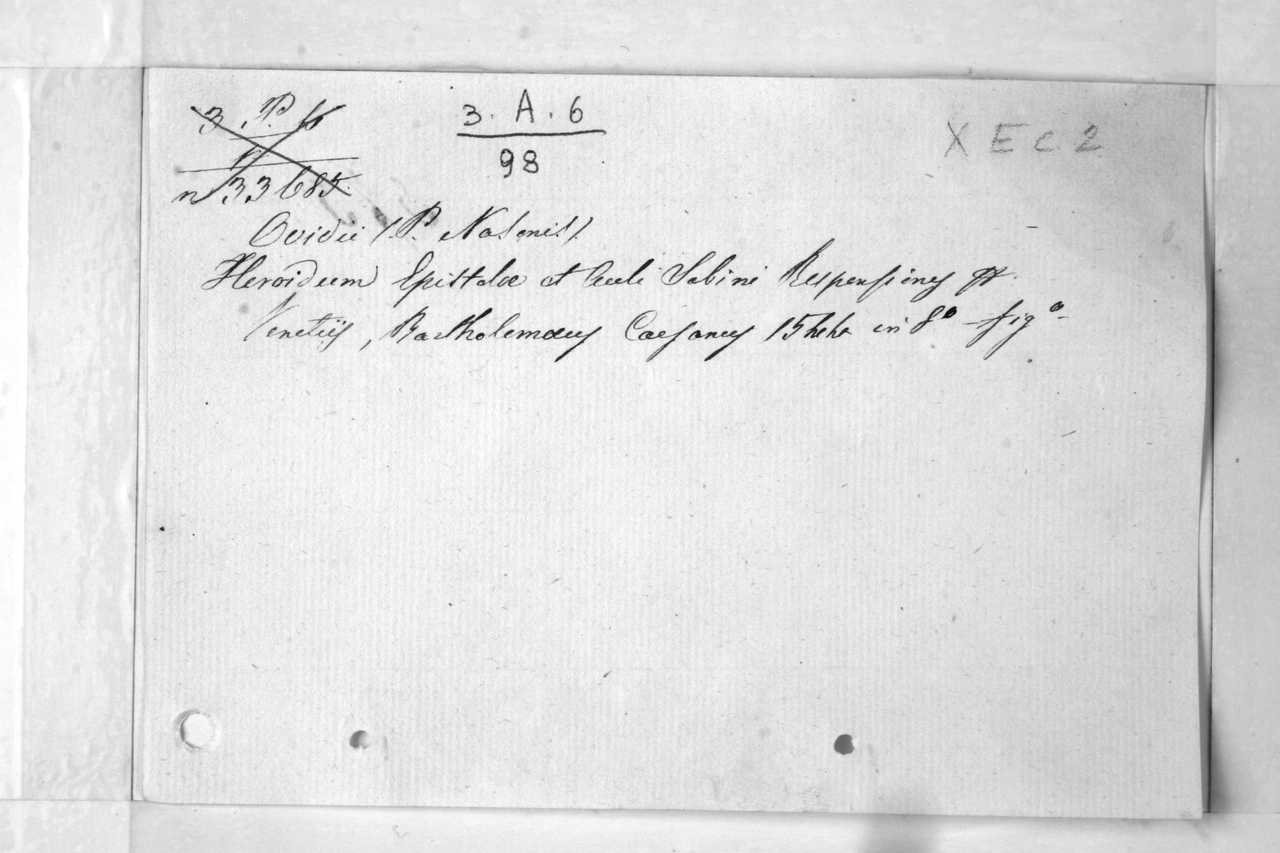 3. P. 6
n 33685.
3. A. 6
98
X E C 2
Ovidii (P. Nasonis).
Heroidum Epistolæ et Auli Sabini Responsiones
Venetiis, Bartholomæus Caesanus 15 in 8º fig º